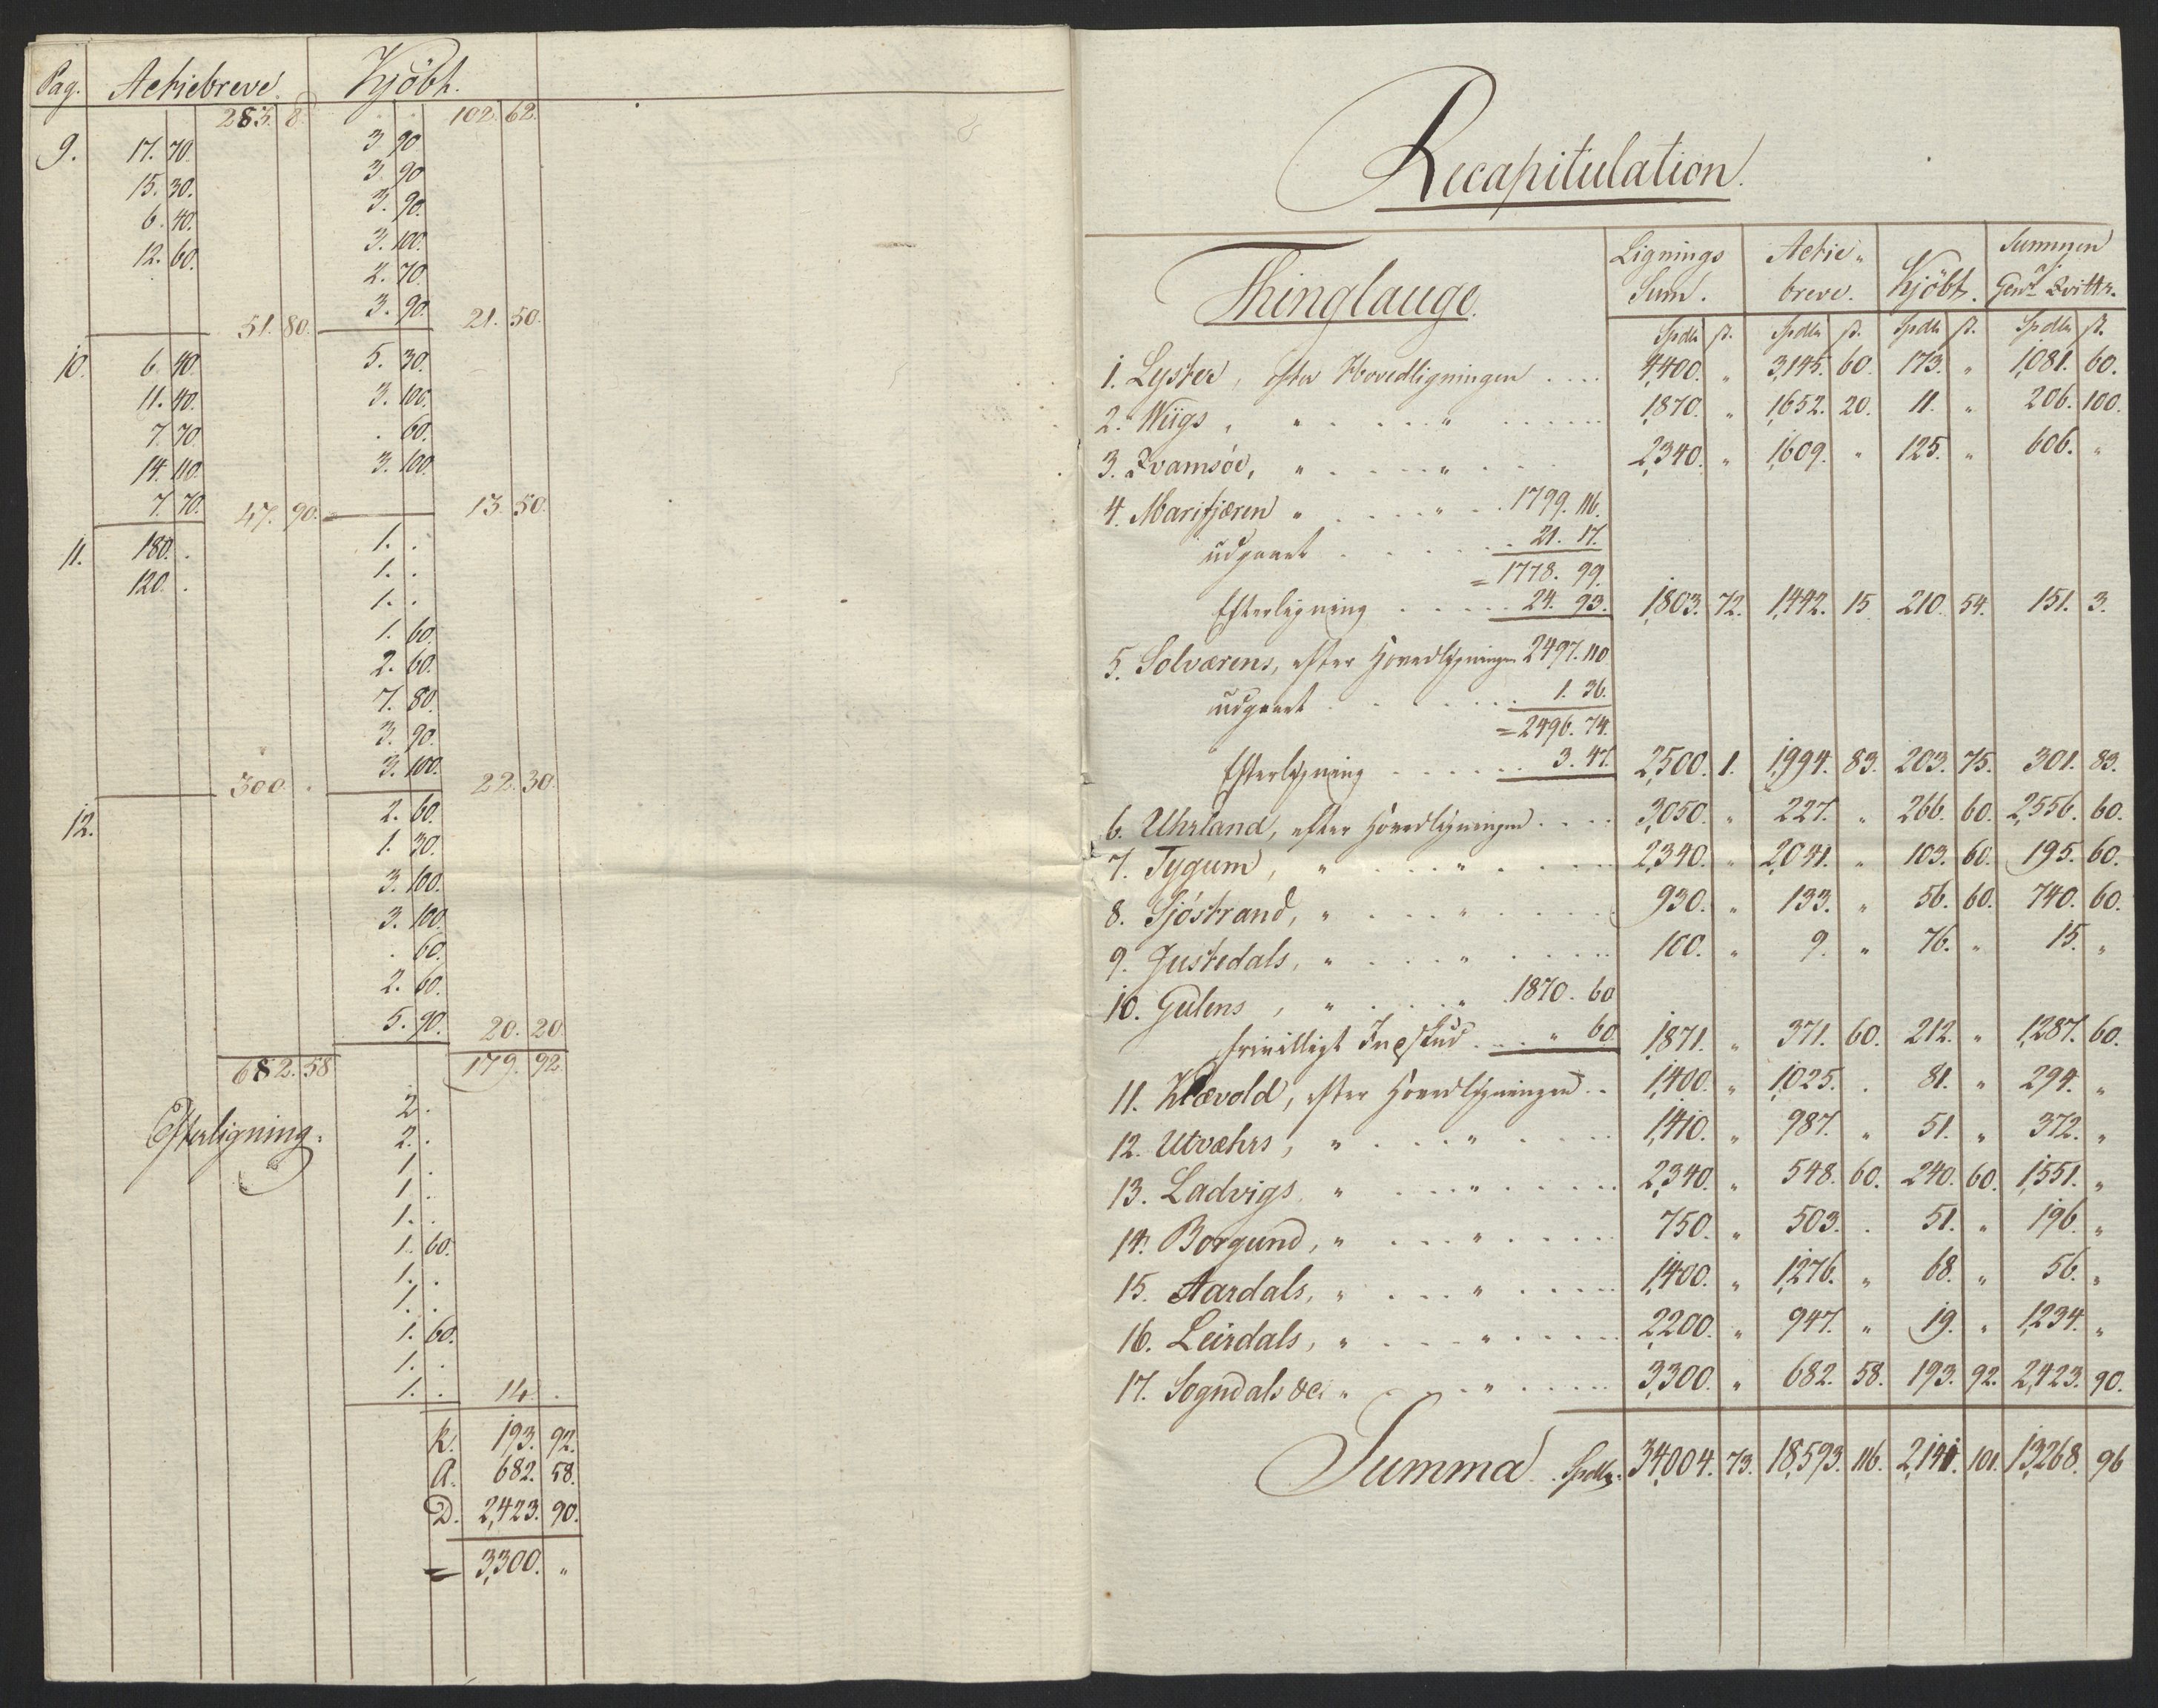 Pag. Actiebreve. Kjöbt.
283. 8. 102. 62.
9. 17. 70. 3. 90.
15. 30. 3. 90.
6. 40. 3. 90.
12. 60. 3. 100.
2. 70.
3. 90.
51. 80. 21. 50.
10. 6. 40. 5. 30.
11. 40. 3. 100.
7. 70. . 60.
14. 110. 3. 100.
7. 70.
47. 90. 13. 50.
11. 180. . 1. .
120. . 1. .
1. .
1. 60.
2. 60.
7. 80.
3. 90.
3. 100.
300. . 22. 30.
12. 2. 60.
1. 30.
3. 100.
3. 100.
. 60.
2. 60.
5. 90. 20. 20.
682. 58. 179. 92.
Efterligning. 2. .
2. .
1. .
1. .
1. .
1. 60.
1. .
1. .
1. 60.
1. .
1. . 14. .
K. 193. 92.
A. 682. 58.
D. 2,423. 90.
= 3,300. "
Recapitulation.
Thinglauge. Lignings Sum. Actie" breve. Kjöbt. Summen af Genl. Qvittr.
Spdlr ß. Spdlr ß. Spdlr ß. Spdlr ß.
1. Lyster, efter Hovedligningen .... 4,400. " 3,145. 60. 173. " 1,081. 60.
2. Wiigs, " .... " .... 1,870. " 1,652. 20. 11. " 206. 100.
3. Qvamsöe, " .... " .. 2,340. " 1,609. " 125. " 606. "
4. Marifjæren " .... " . 1799. 116.
udgaaet ..... 21. 17.
= 1778. 99.
Efterligning ..... 24. 93. 1,803. 72. 1,442. 15 210. 54. 151. 3.
5. Solværens, efter Hovedligningen 2497. 110
udgaaet ..... 1. 36.
= 2496. 74.
Efterligning ..... 3. 47. 2,500. 1. 1,994. 83. 203. 75. 301. 83.
6. Uhrland, efter Hovedligningen .... 3,050. " 227. " 266. 60. 2,556. 60.
7. Tygum, " .... " .... 2,340. " 2,041. " 103. 60. 195. 60.
8. Sjöstrand, " .... " .... 930. " 133. " 56. 60. 740. 60.
9. Justedals, " .... " .... 100. " 9. " 76. " 15. "
10. Gulens, " .... " 1870. 60
frivilligt Indskud ... " 60. 1,871. " 371. 60. 212. " 1,287. 60.
11. Klævold, efter Hovedligningen .. 1,400. " 1,025. . 81. " 294. "
12. Utvæhrs, " .... " .... 1,410. " 987. " 51. " 372. "
13. Ladvigs, " .... " .... 2,340. " 548. 60. 240. 60. 1,551. "
14. Borgund, " .... " .... 750. " 503. . 51. " 196. "
15. Aardals, " .... " .... 1,400. " 1,276. " 68. " 56. "
16. Leirdals, " .... " .... 2,200. " 947. " 19. " 1,234. "
17. Sogndals &c: " .... " .... 3,300. " 682. 58. 193. 92. 2,423. 90.
Summa. Spdlr. 34,004. 73. 18,593. 116. 2,141. 101. 13,268. 96